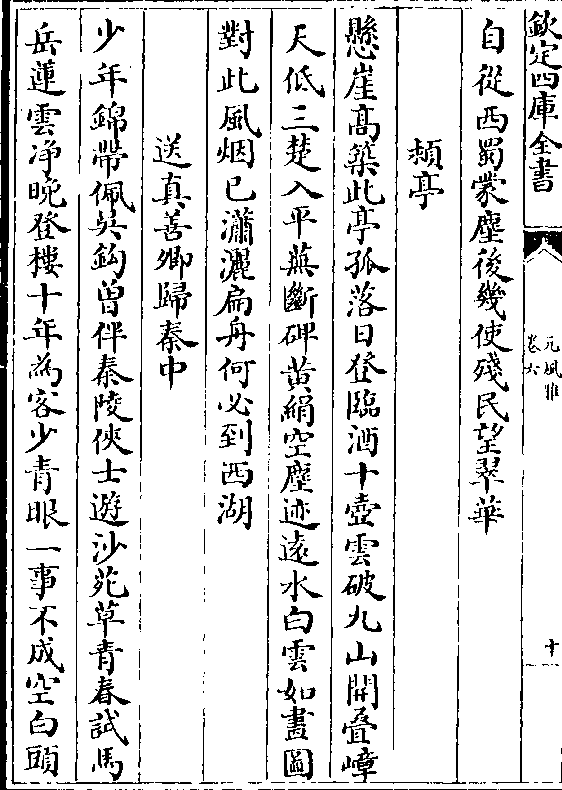 欽定四庫全書
元風雅
卷六
十
自從西蜀蒙塵後幾使殘民望翠華
頫亭
懸崖高築此亭孤落日登臨酒十壺雲破九山開疊嶂
天低三楚入平蕪斷碑黃絹空塵迹遠水白雲如畫圖
對此風烟已瀟灑扁舟何必到西湖
送真善卿歸秦中
少年錦帶佩吳鈎曾伴秦陵俠士遊沙苑草青春試馬
岳蓮雲净晚登樓十年為客少青眼一事不成空白頭